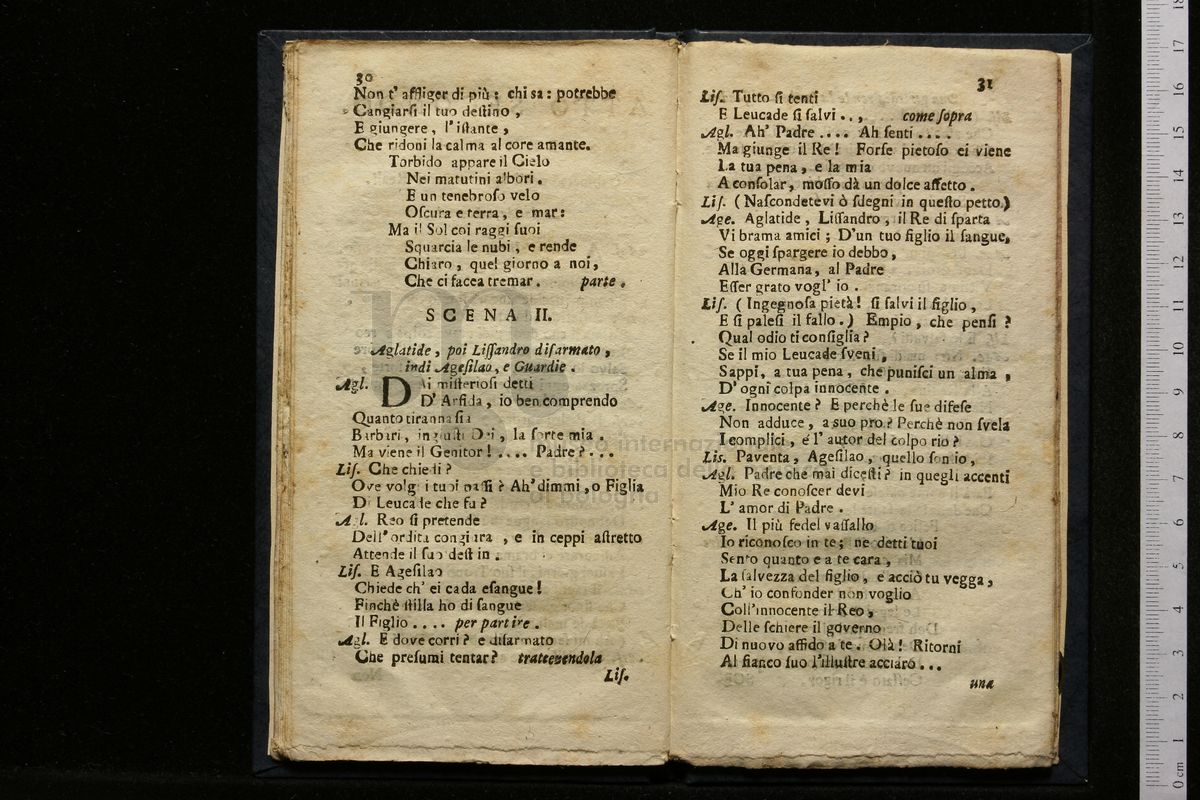 30
Non t' affliger di più: chi sa: potrebbe
Cangiarsi il tuo destino,
E giungere, l' istante,
Che ridoni la calma al core amante.
Torbido appare il Cielo
Nei matutini albori.
E un tenebroso velo
Oscura e terra, e mar:
Ma il Sol coi raggi suoi
Squarcia le nubi, e rende
Chiaro, quel giorno a noi,
Che ci facea tremar. parte.
SCENA II.
Aglatide, poi Lissandro disarmato,
indi Agesilao, e Guardie.
Agl. DAi misteriosi detti
D' Arsida, io ben comprendo
Quanto tiranna sia
Barbari, ingiusti Dei, la sorte mia.
Ma viene il Genitor! .... Padre? ...
Lis. Che chiedi?
Ove volgi i tuoi passi? Ah' dimmi, o Figlia
Di Leucade che fu?
Agl. Reo si pretende
Dell' ordita congiura, e in ceppi astretto
Attende il suo destin.
Lis. E Agesilao
Chiede ch' ei cada esangue!
Finchè stilla ho di sangue
Il Figlio .... per partire.
Agl. E dove corri? e disarmato
Che presumi tentar? trattenendola
Lis.
31
Lis. Tutto si tenti
E Leucade si salvi .., come sopra
Agl. Ah' Padre .... Ah senti ....
Ma giunge il Re! Forse pietoso ei viene
La tua pena, e la mia
A consolar, mosso dà un dolce affetto.
Lis. (Nascondetevi ò sdegni in questo petto.)
Age. Aglatide, Lissandro, il Re di sparta
Vi brama amici; D'un tuo figlio il sangue,
Se oggi spargere io debbo,
Alla Germana, al Padre
Esser grato vogl' io.
Lis. (Ingegnosa pietà! si salvi il figlio,
E si palesi il fallo.) Empio, che pensi?
Qual odio ti consiglia?
Se il mio Leucade sveni,
Sappi, a tua pena, che punisci un alma,
D' ogni colpa innocente.
Age. Innocente? E perchè le sue difese
Non adduce, a suo pro? Perchè non svela
I complici, e l' autor del colpo rio?
Lis. Paventa, Agesilao, quello son io,
Agl. Padre che mai dicesti? in quegli accenti
Mio Re conoscer devi
L' amor di Padre.
Age. Il più fedel vassallo
Io riconosco in te; ne detti tuoi
Sento quanto e a te cara,
La salvezza del figlio, e acciò tu vegga,
Ch' io confonder non voglio
Coll'innocente il Reo,
Delle schiere il governo
Di nuovo affido a te. Olà! Ritorni
Al fianco suo l'illustre acciaro...
una